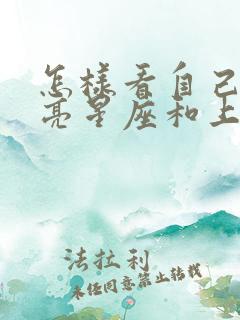 怎样看自己
亮星座和上
法拉利
未经同意禁止转载